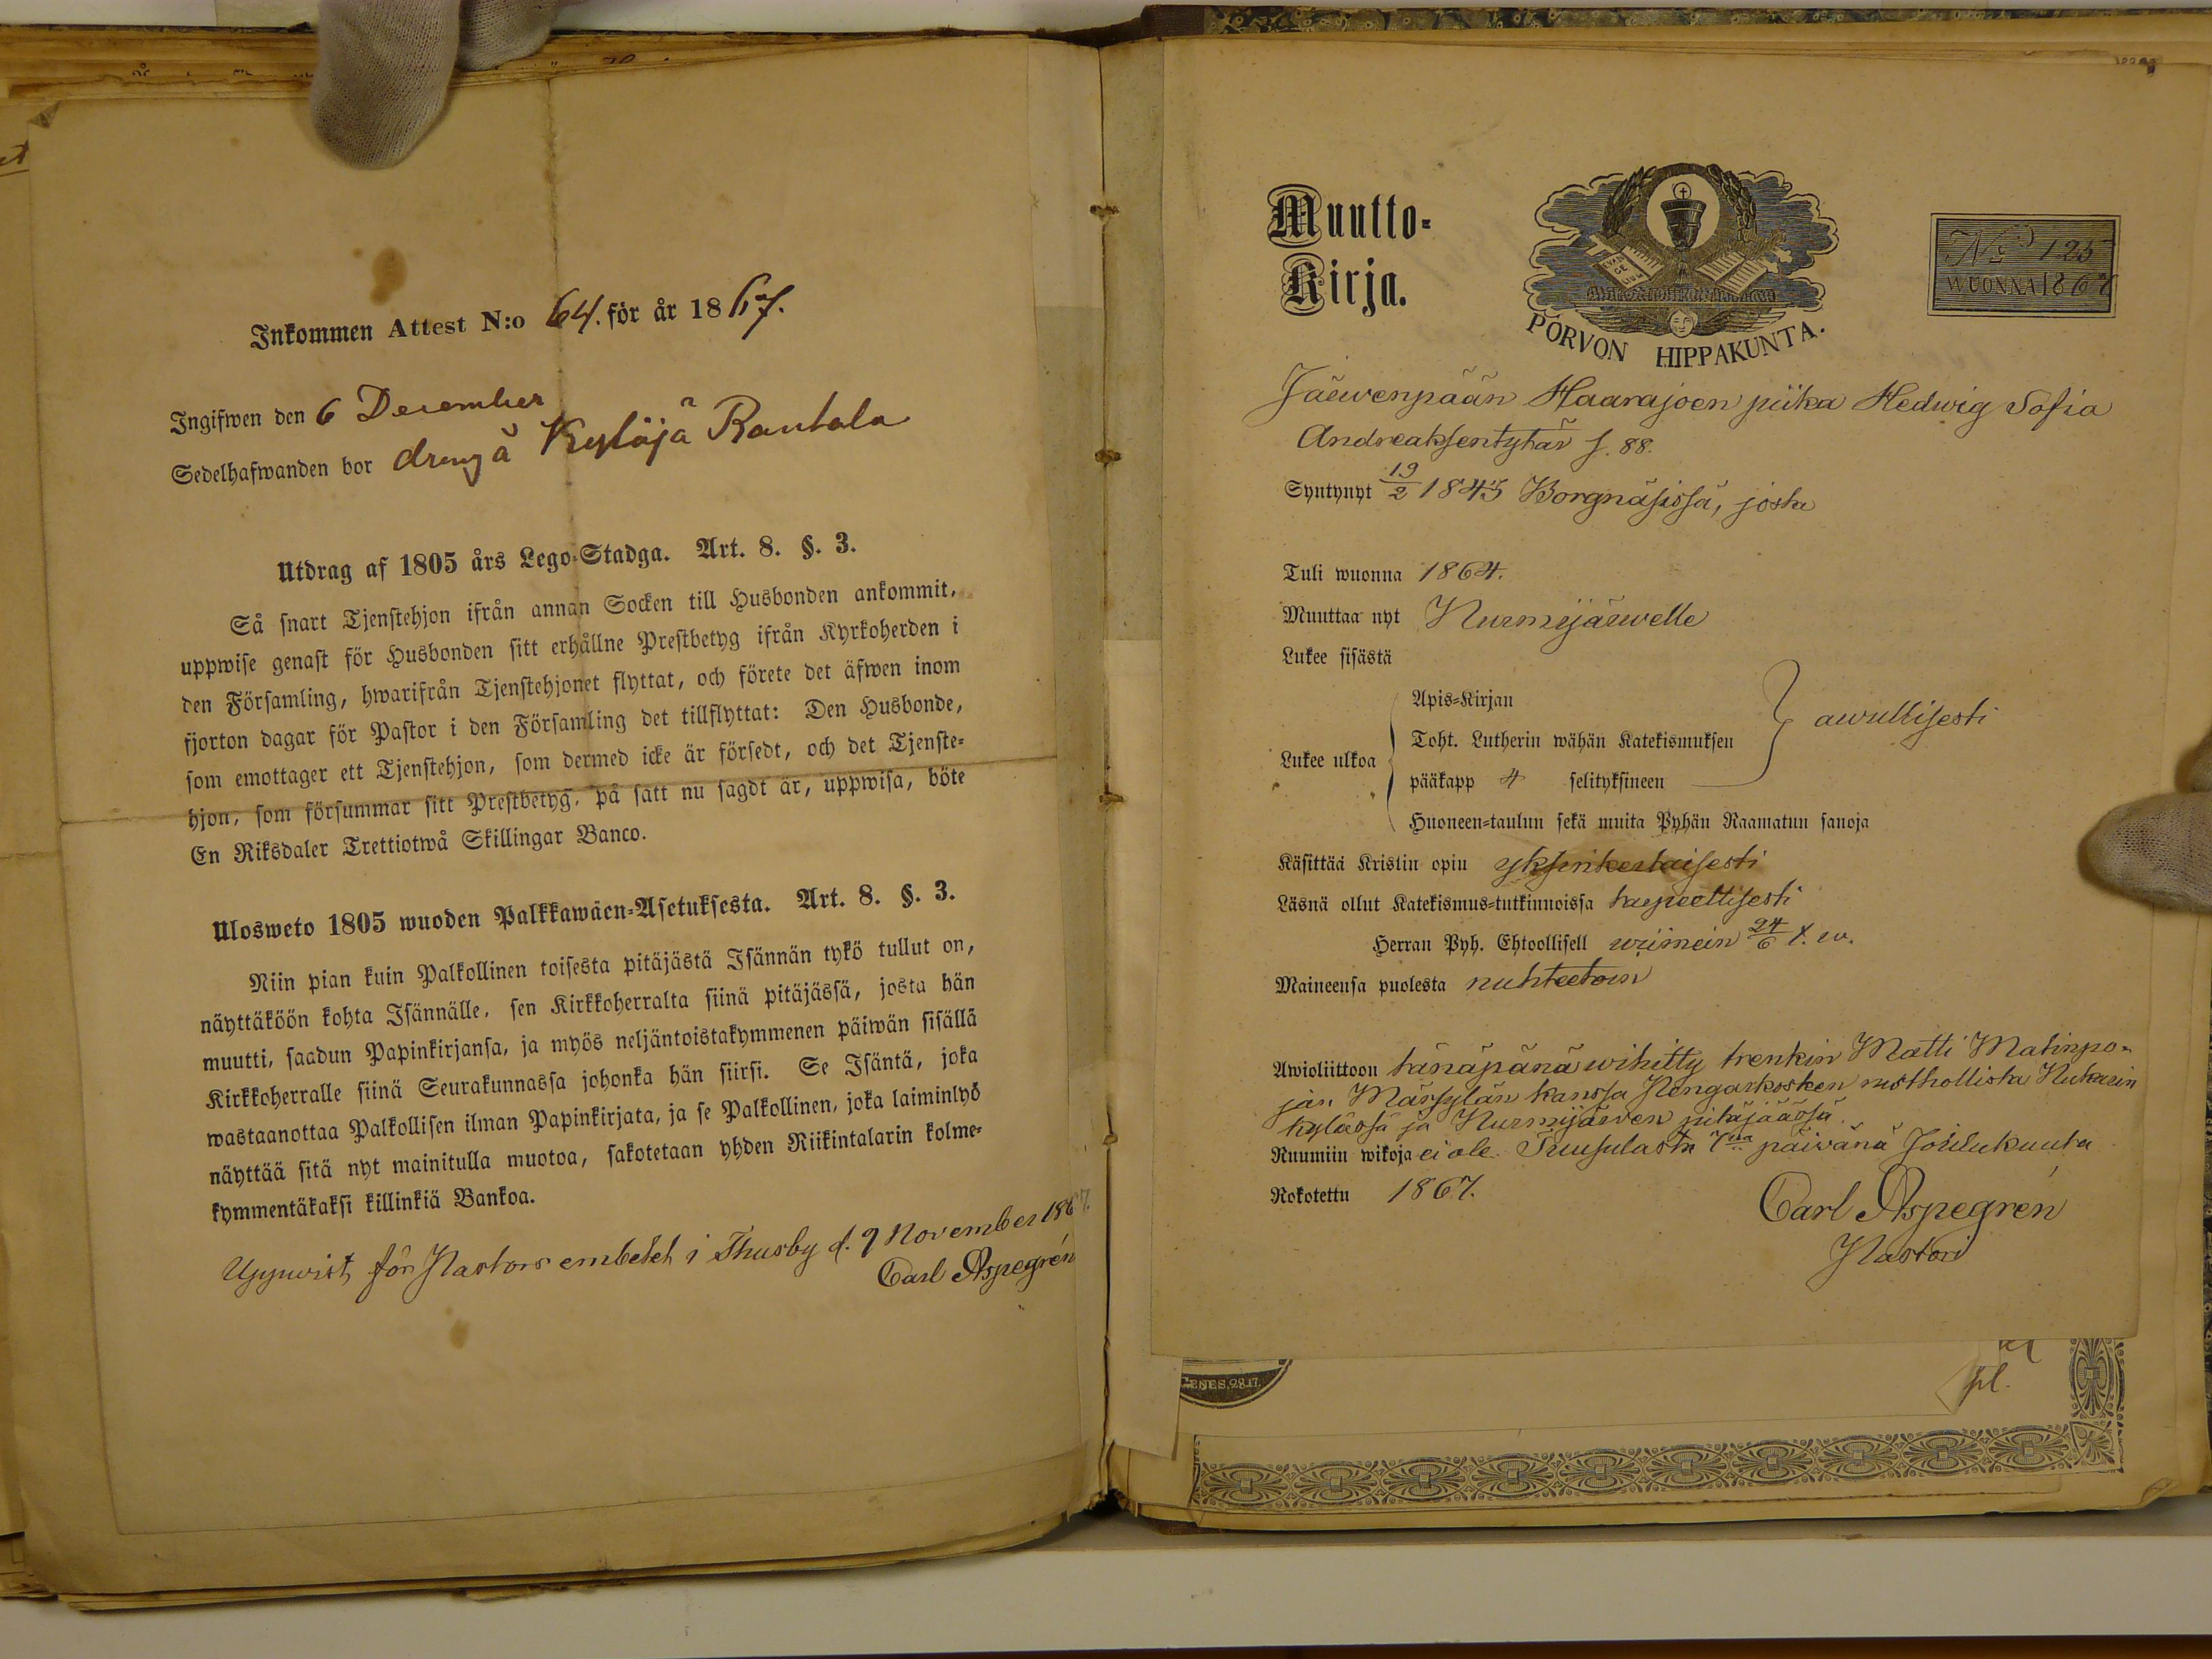 Inkommen Attest N:o 64. för år 1867.
Ingifwen den 6 December
Sedelhafwanden bor dreng å Kyläjä Rantala
Utdrag af 1805 års Lego-Stadga. Art. 8. §. 3.
Så snart Tjenstehjon ifrån annan Socken till Husbonden ankommit,
uppwise genast för Husbonden sitt erhållne Prestbetyg ifrån Kyrkoherden i
den Församling, hwarifrån Tjenstehjonet flyttat, och förete det äfwen inom
fjorton dagar för Pastor i den Församling det tillflyttat: Den Husbonde,
som emottager ett Tjenstehjon, som dermed icke är försedt, och det Tjenste-
hjon, som försummar sitt Prestbetyg, på sätt nu sagdt är, uppwisa, böte
En Riksdaler Trettiotwå Skillingar Banco.
Ulosweto 1805 wuoden Palkkawäen-Asetuksesta. Art. 8. §. 3.
Niin pian kuin Palkollinen toisesta pitäjästä Isännän tykö tullut on,
näyttäköön kohta Isännälle, sen Kirkkoherralta siinä pitäjässä, josta hän
muutti, saadun Papinkirjansa, ja myös neljäntoistakymmenen päiwän sisällä
Kirkkoherralle siinä Seurakunnassa johonka hän siirsi. Se Isäntä, joka
wastaanottaa Palkollisen ilman Papinkirjata, ja se Palkollinen, joka laiminlyö
näyttää sitä nyt mainitulla muotoa, sakotetaan yhden Riikintalarin kolme-
kymmentäkaksi killinkiä Bankoa.
Uppwist för Pastors embetet i Thusby d. 9 November 1867.
Carl Aspegrén
Muutto-
Kirja.
EVAN
GE
LIUM
PORVON HIPPAKUNTA.
No 125
WUONNA 1867
Jäewenpään Haarajoen piika Hedwig Sofia
Andreaksentytär s. 88.
Syntynyt 19/2 1845 Borgnäsissä, josta
Tuli wuonna 1864.
Muuttaa nyt Nurmijärwelle
Lukee sisästä
Apis-Kirjan
Toht. Lutherin wähän Katekismuksen
awullisesti
Lukee ulkoa
pääkapp 4 selityksineen
Huoneen-taulun sekä muita Pyhän Raamatun sanoja
Käsittää Kristin opin yksinkertaisesti
Läsnä ollut Katekismus-tutkinnoissa tarpeellisesti
Herran Pyh. Ehtoollisell wiimein 24/6 t. w.
Maineensa puolesta nuhteetoin
Awioliittoon tänäpänä wihitty trenkin Matti Matinpo-
jan Märsylän kanssa Pengarkosken rusthollista Nukarin
kylässä ja Nurmijärwen pitäjäässä.
Ruumiin wikoja ei ole. Tuusulasta 7nä päivänä Joulukuuta
Rokotettu 1867.
Carl Aspegrén
Pastori
GENES. 28.17.
pl.